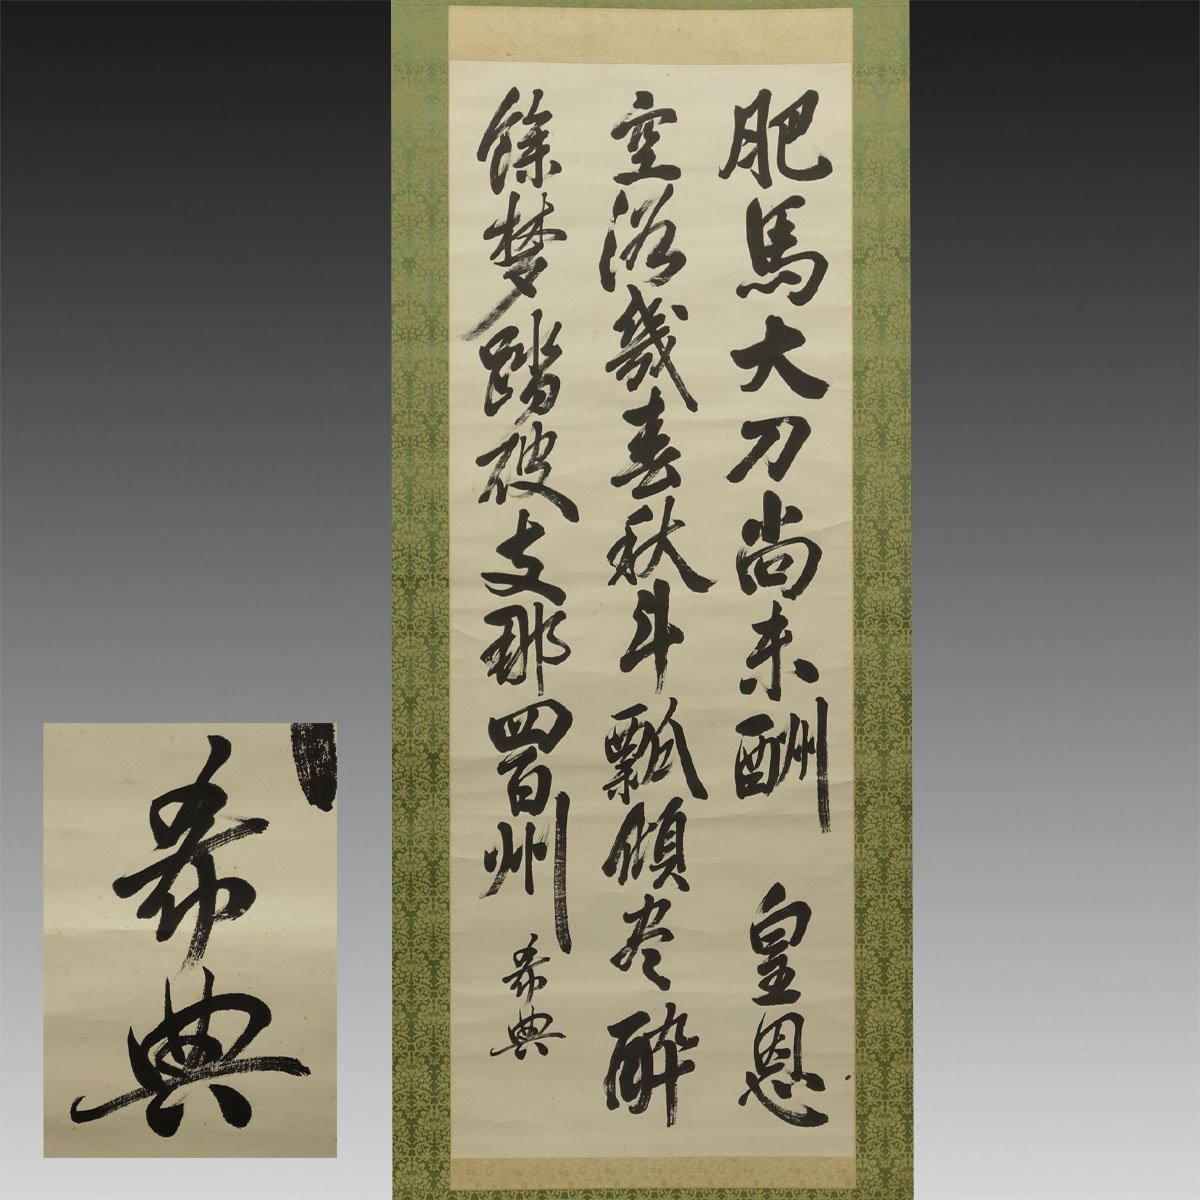 肥馬大刀尚未酬 皇恩
空浴幾春秋斗瓢傾尽酔
餘夢踏破支那四百州
希典
希典